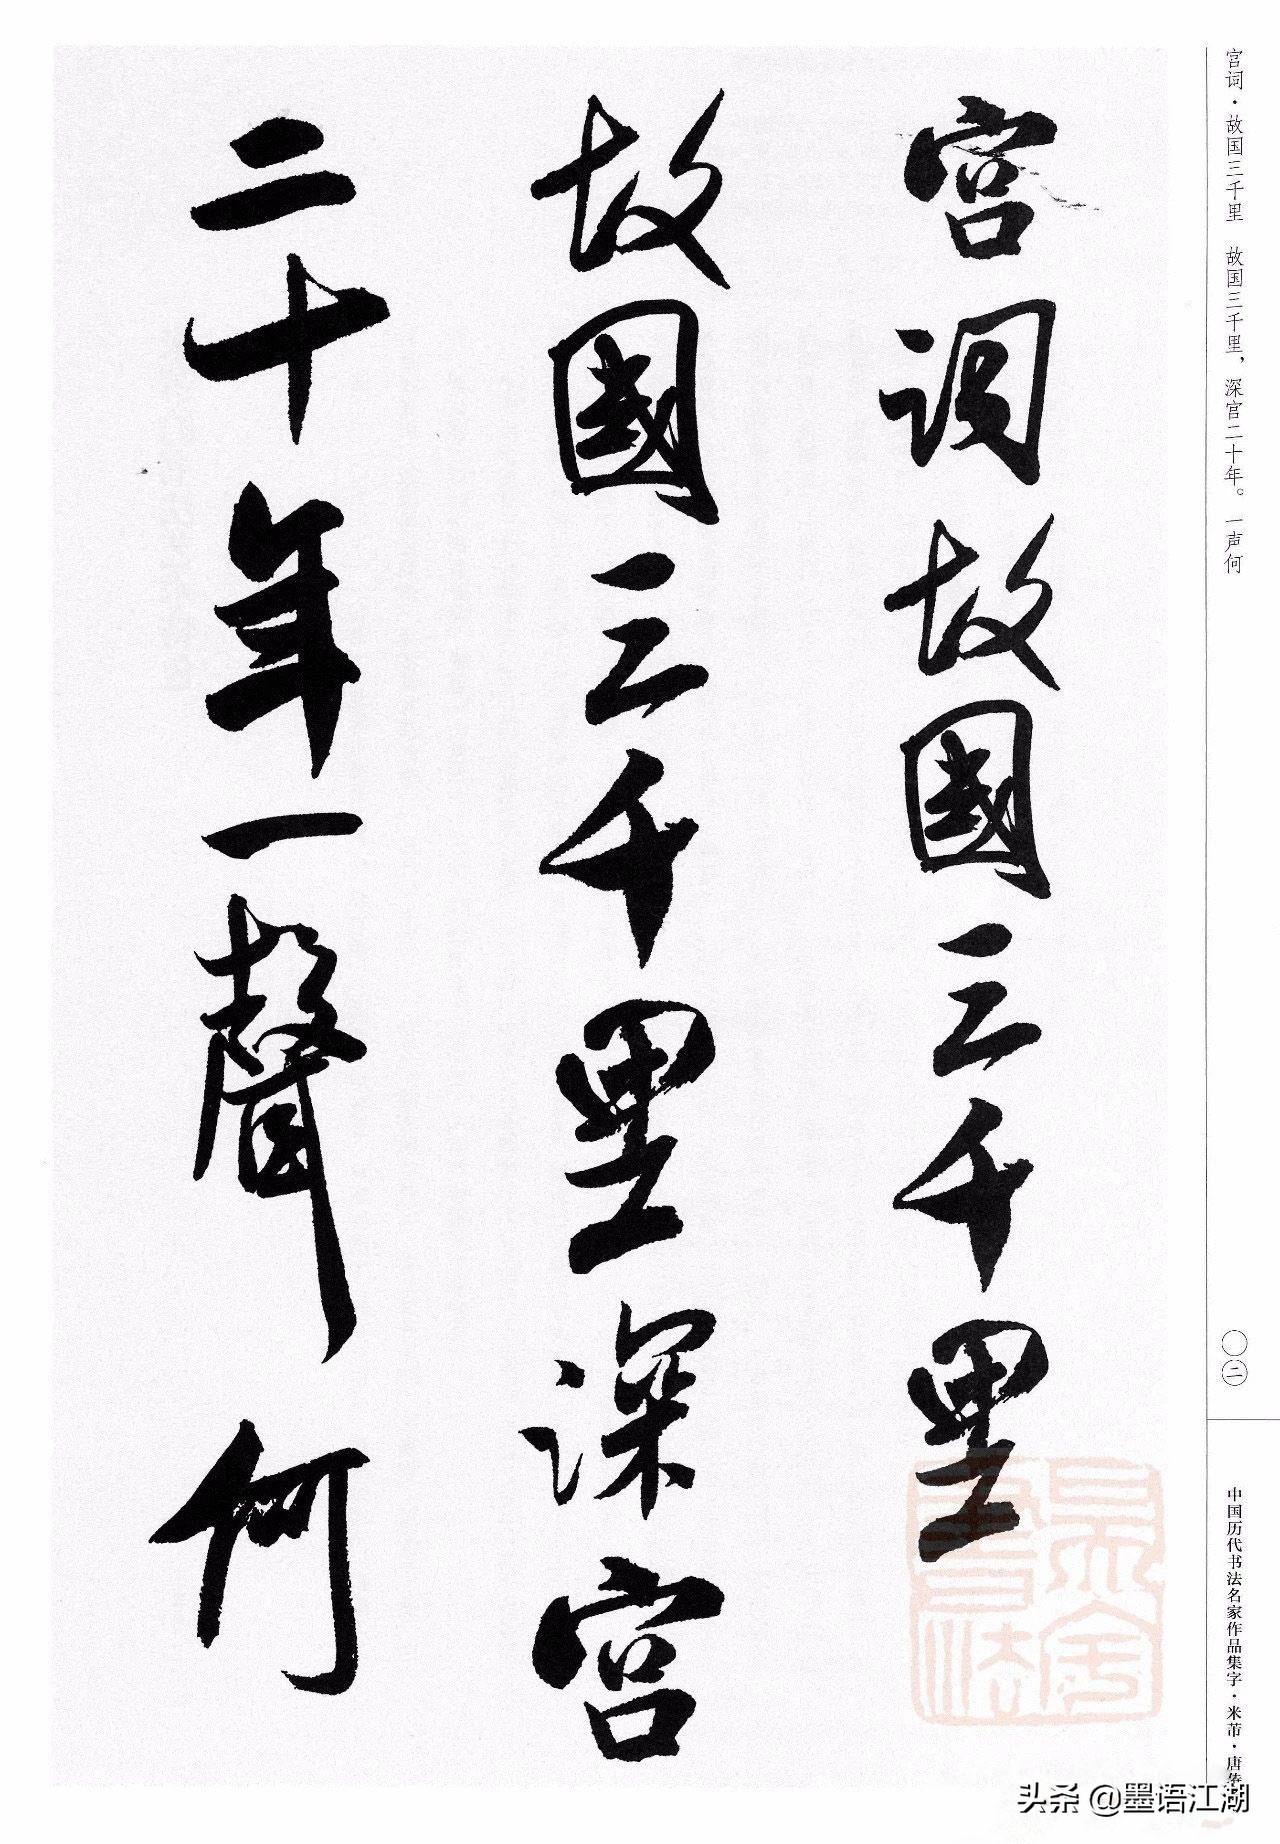 宫词·故国三千里　故国三千里，深宫二十年。一声何
宫詞故國三千里
故國三千里深宫
二十年一聲何
〇二
中国历代书法名家作品集字·米芾·唐
头条 @墨语江湖